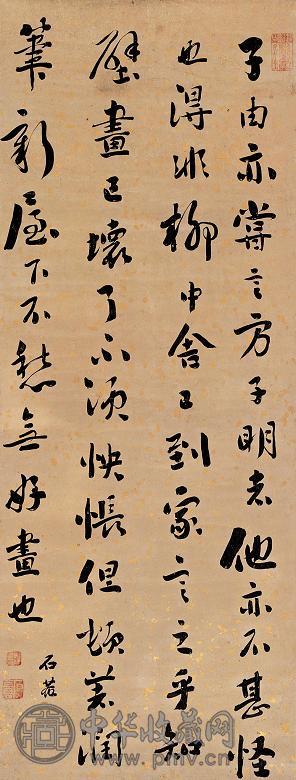 子由亦嘗言方子明者他亦不甚怪
也得非柳中舍已到家言之乎知
壁畫已壞了不須怏悵但頓著潤
筆新屋下不愁無好畫也
石菴
中华收藏网